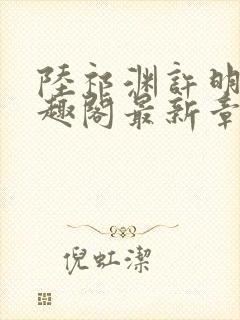 陸祁淵許明
趣閣最新章
倪虹潔